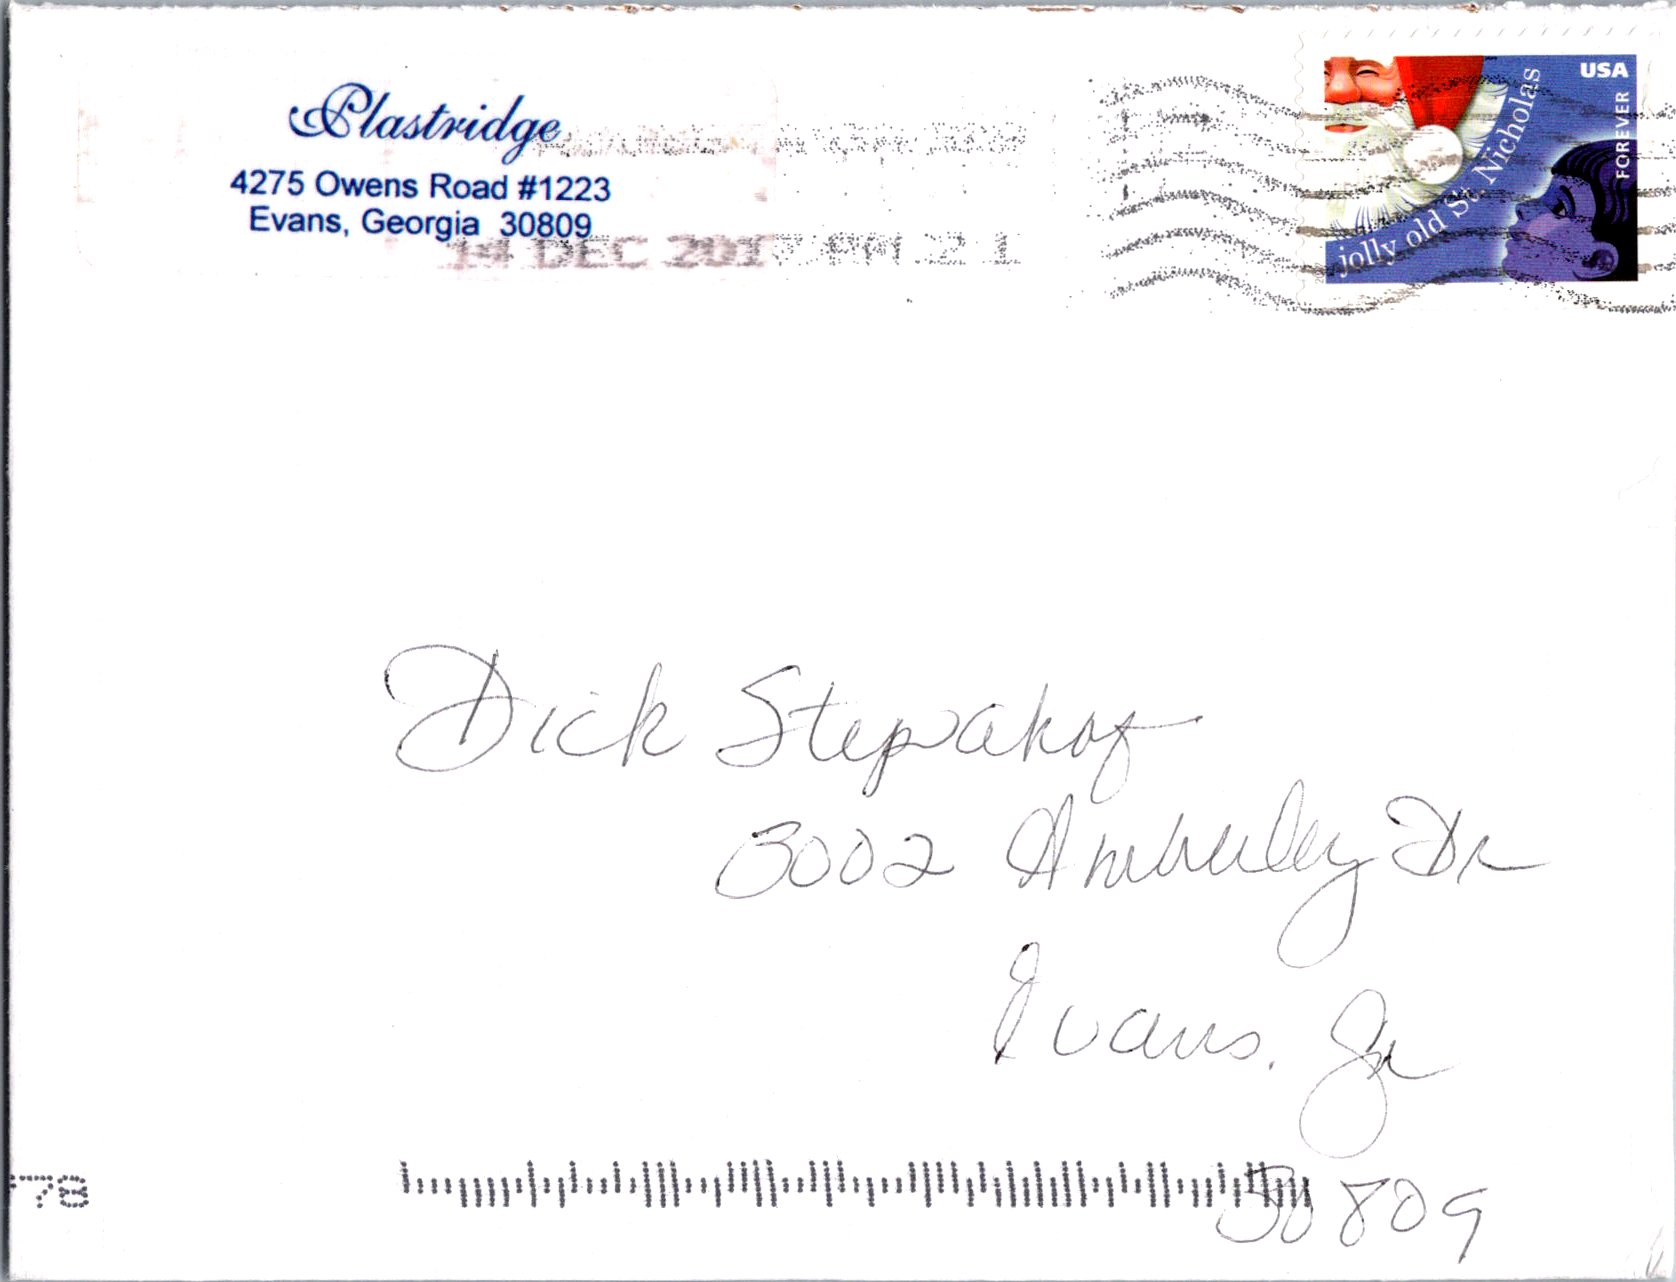 Plastridge
4275 Owens Road #1223
Evans, Georgia 30809
14 DEC 2017 PM 2 L
USA
FOREVER
jolly old St. Nicholas
Dick Stepakof
3002 Amberley Dr
Evans, Ga
30809
78